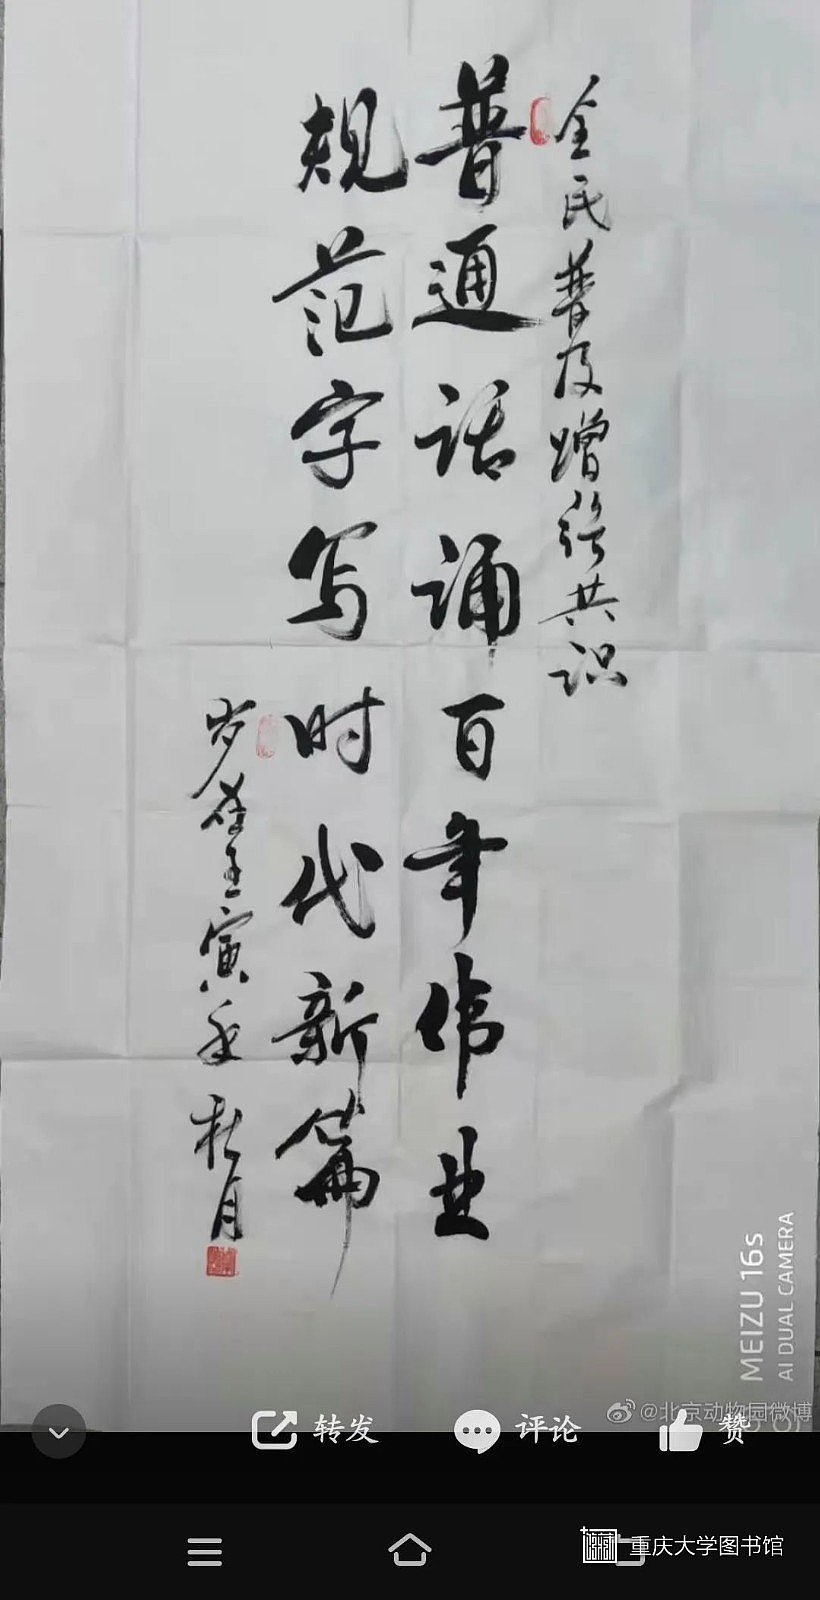 全民普及增强共识
普通话诵百年伟业
规范字写时代新篇
岁在壬寅年 杜月
MEIZU 16s
AI DUAL CAMERA
@北京动物园微博
转发
评论
赞
重庆大学图书馆